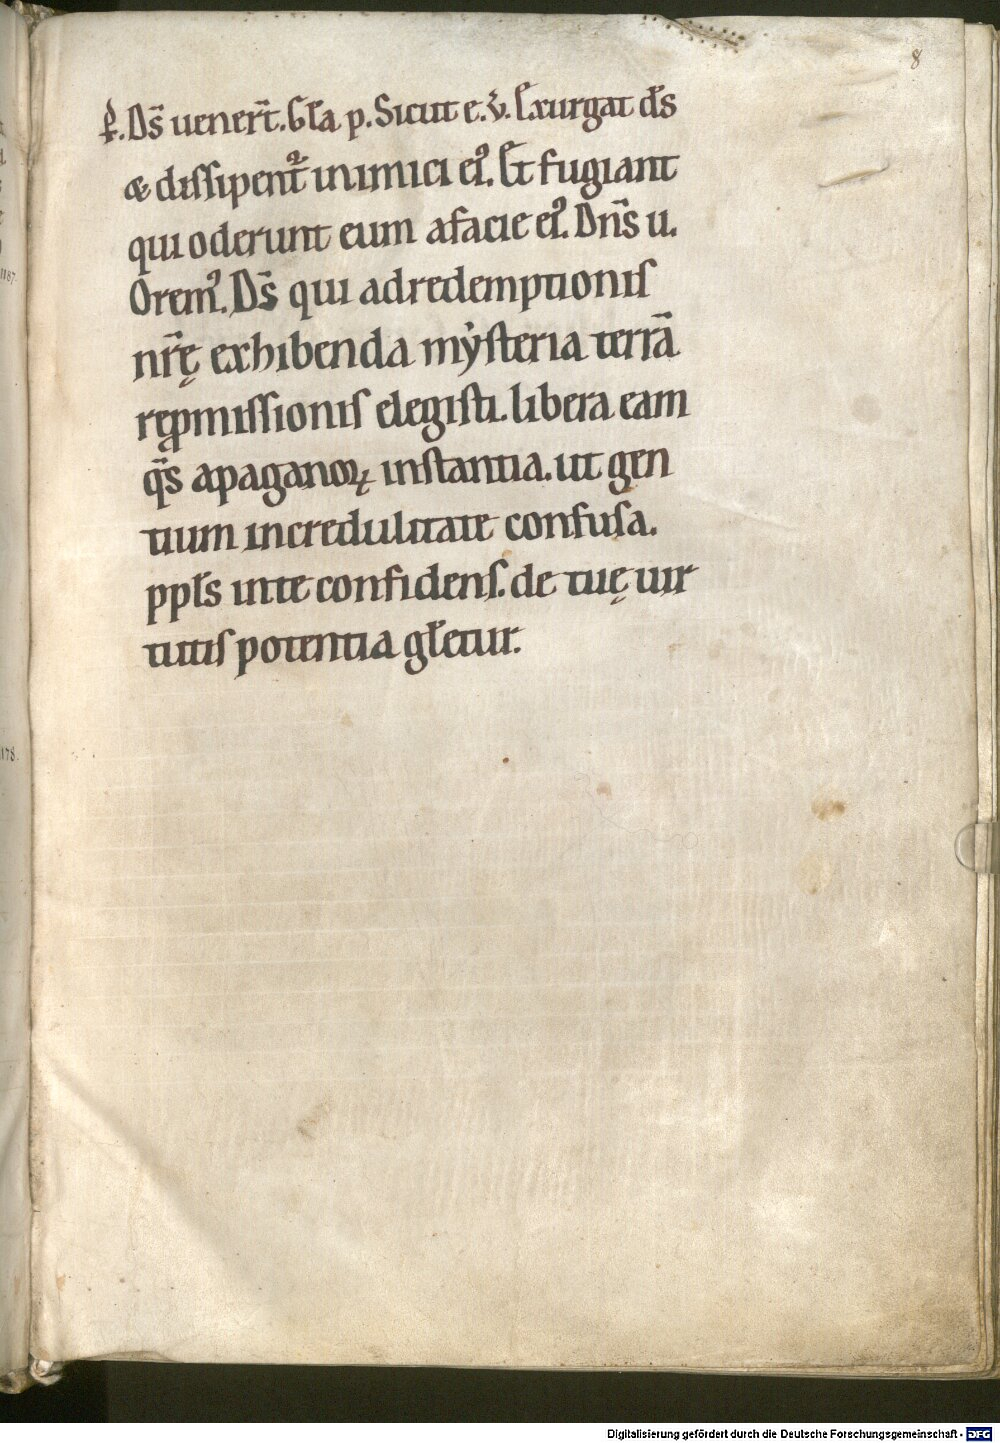 8
P̄. Ds̄ uener̄t. Gl̄a p. Sicut e. v̄. Exurgat ds̄
& dissipent᷑ inimici ei᷒. Et fugiant
qui oderunt eum afacie ei᷒. Dn̄s u.
Orem᷒. Ds̄ qui adredemptionis
nr̄ę exhibenda mẏsteria terrā
reꝓmissionis elegisti. libera eam
qs̄ apaganoꝝ instantia. ut gen
tium incredulitate confusa.
ppl̄s inte confidens. de tuę uir
tutis potentia gl̄etur.
1187.
1178.
Digitalisierung gefördert durch die Deutsche Forschungsgemeinschaft - DFG